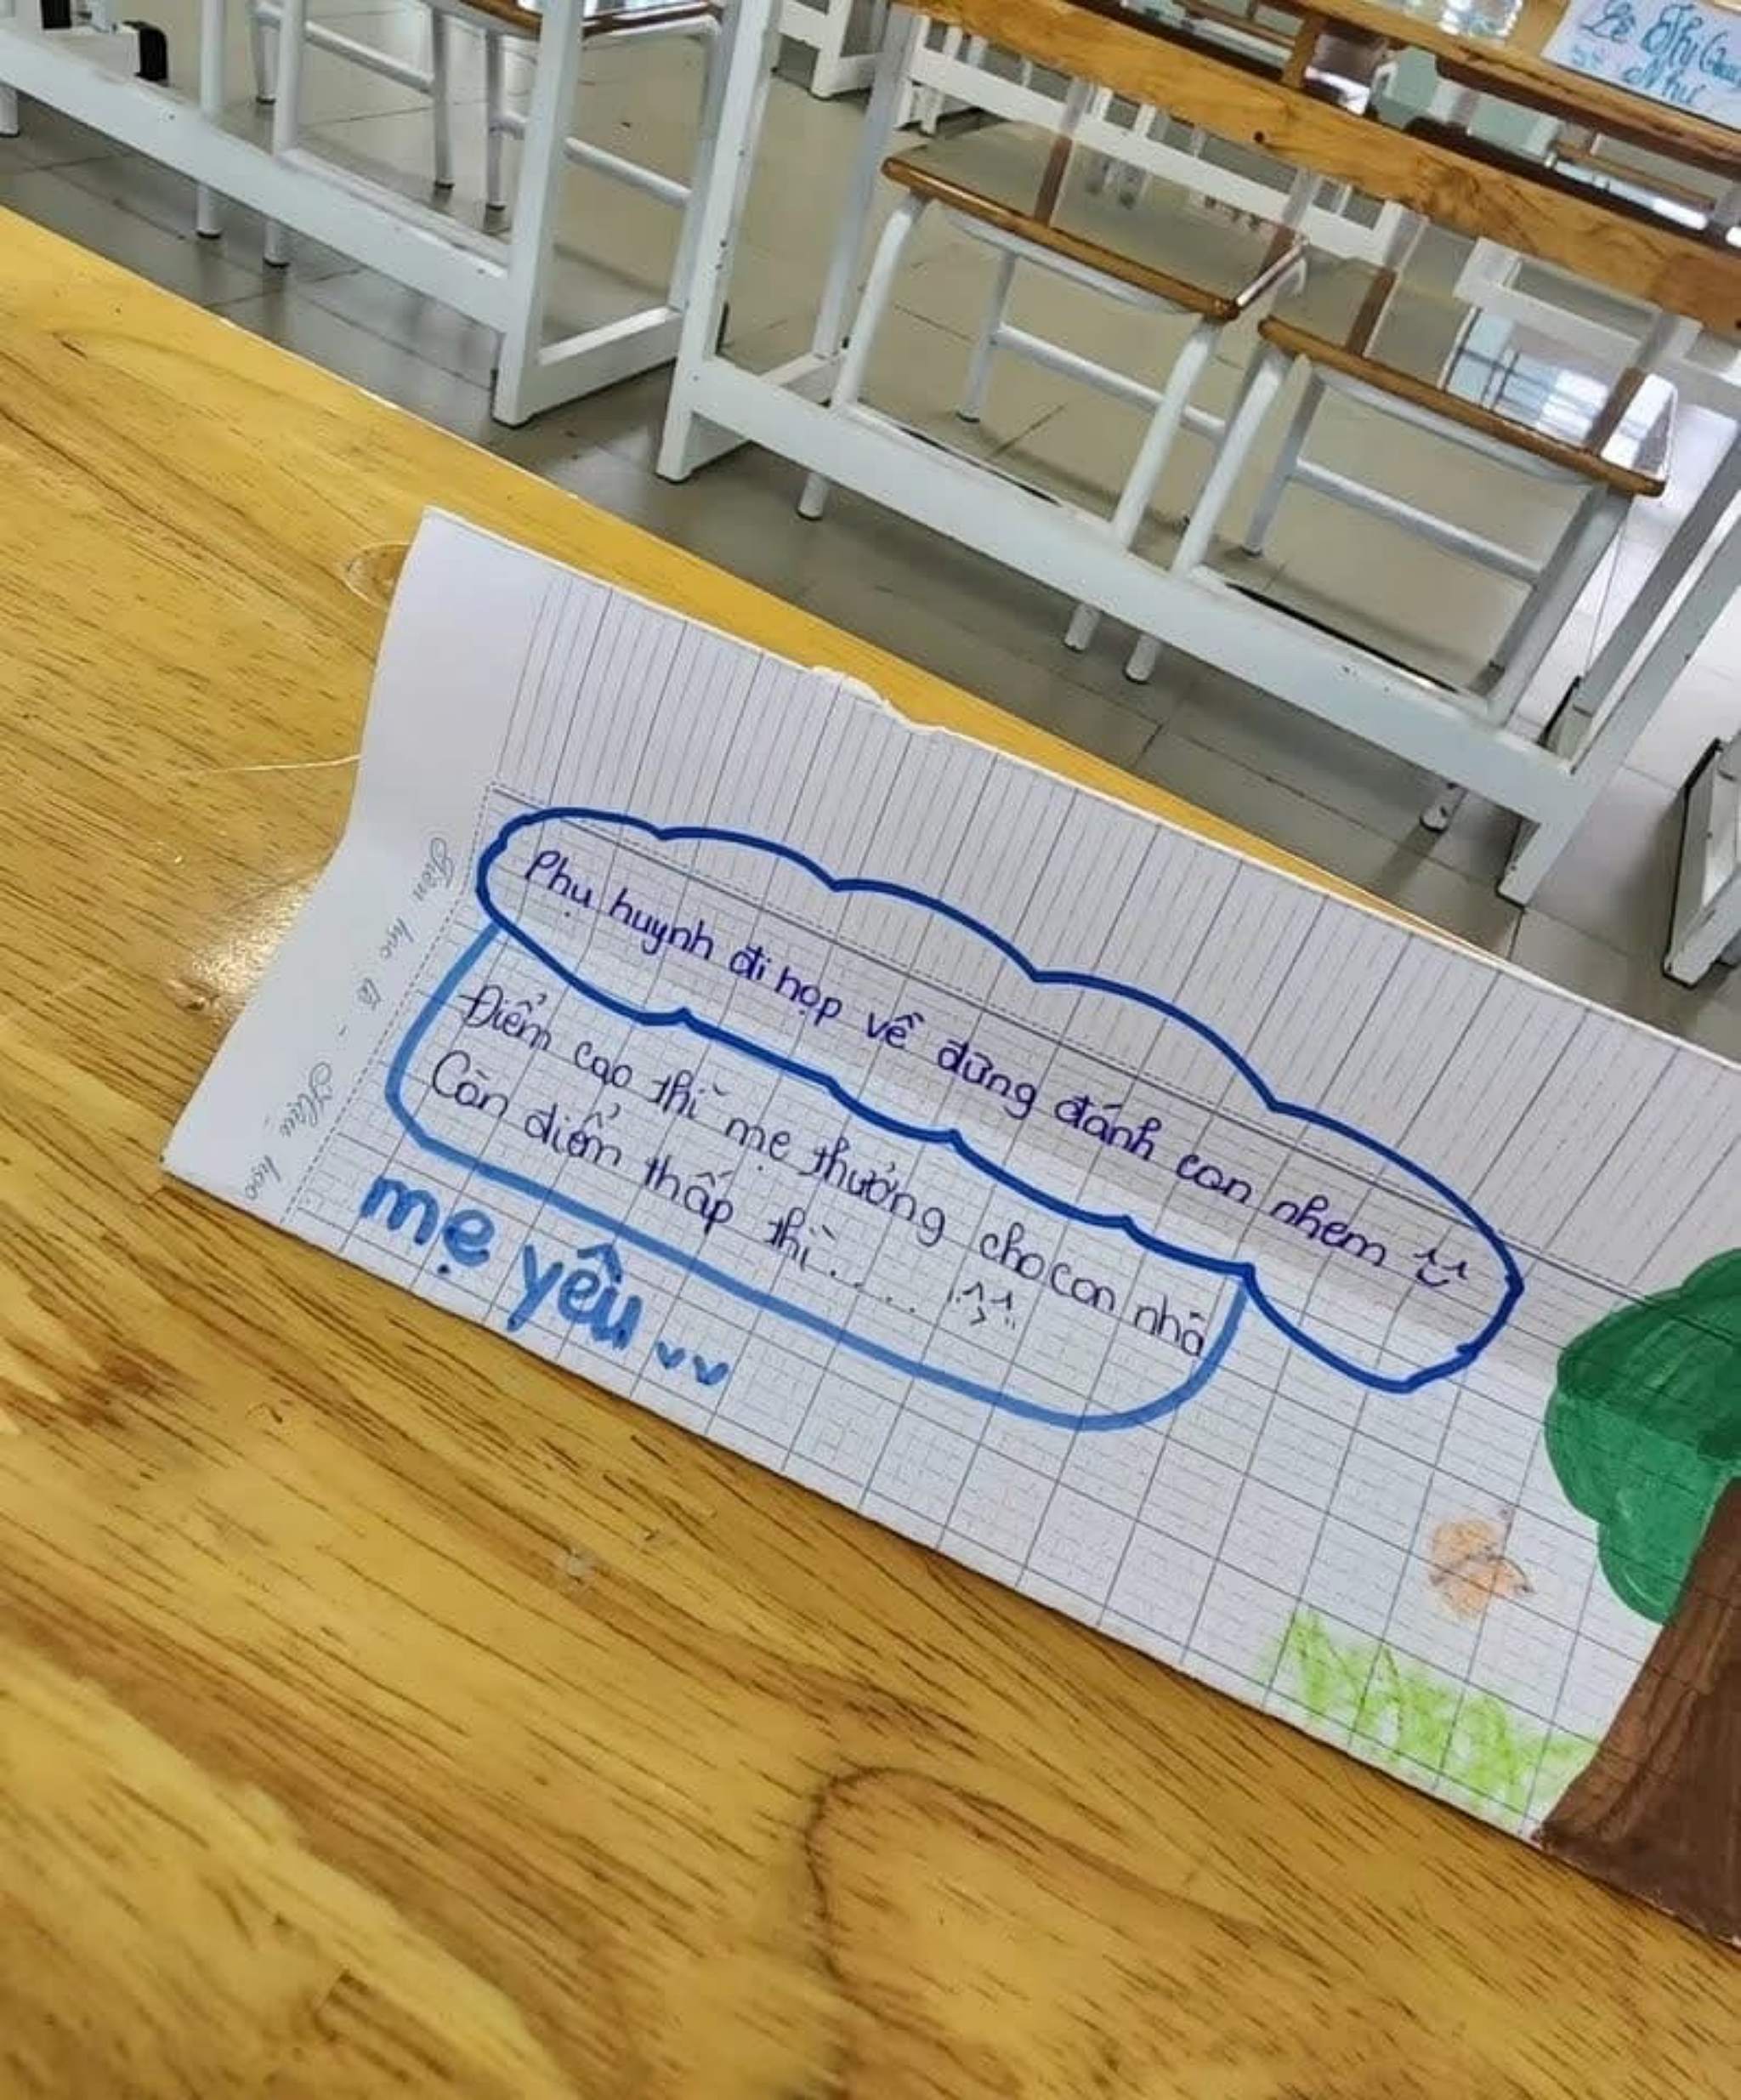 Lê Thị
Như
Phụ huynh đi họp về đừng đánh con nhem
Điểm cao thì mẹ thưởng cho con nhá
Còn điểm thấp thì.....
mẹ yêu
Tiên học lễ - Hậu học